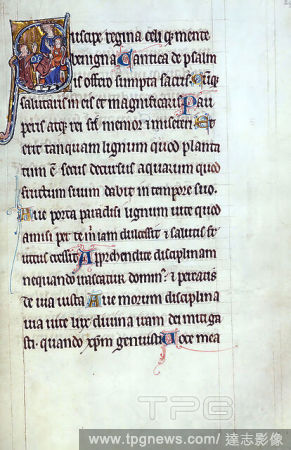 Suscipe regina celi que mente
benigna Cantica de psalm
is offero sumpta sacris. Cumque
salutaris in eis et magnificaris Pau
peris atque rei sis memor et miserere Et
erit tanquam lignum quod planta
tum est secus decursus aquarum quod
fructum suum dabit in tempore suo.
Aue porta paradisi lignum uite quod
amisi per te michi iam dulcescit et salutis
uirtus crescit Apprehendite disciplinam
nequando irascatur dominus et pereatis
de uia iusta Aue morum disciplina
uia uite lux diuina iram dei mitigas
ti quando xpm genuisti Uoce mea
TPG
www.tpgnews.com / 達志影像